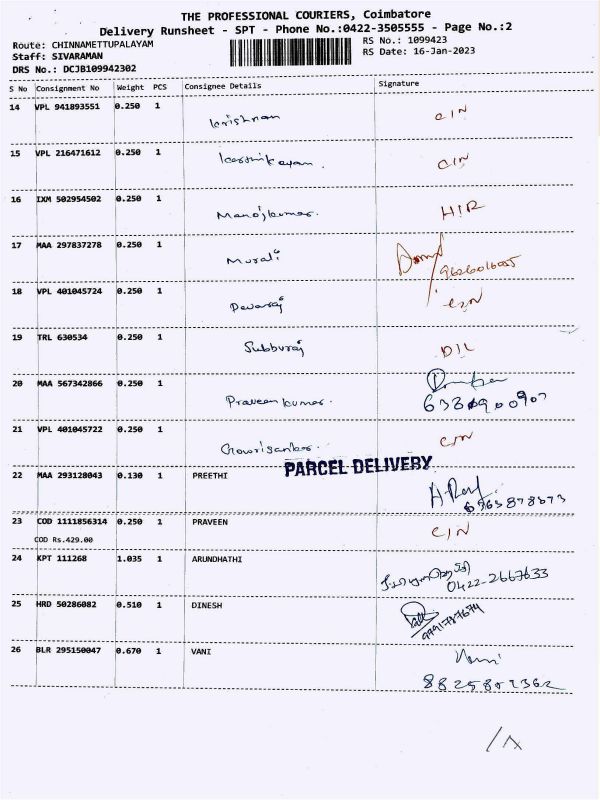 THE PROFESSIONAL COURIERS, Coimbatore
Delivery Runsheet - SPT - Phone No.:0422-3505555 - Page No.:2
Route: CHINNAMETTUPALAYAM RS No.: 1099423
Staff: SIVARAMAN RS Date: 16-Jan-2023
DRS No.: DCJB109942302
S No Consignment No Weight PCS Consignee Details Signature
14 VPL 941893551 0.250 1
Krishnan CIN
15 VPL 216471612 0.250 1
Karthikeyan. CIN
16 IXM 502954502 0.250 1
Manojkumar. HIR
17 MAA 297837278 0.250 1
Murali
18 VPL 401045724 0.250 1
Devaraj CIN
19 TRL 630534 0.250 1
Subburaj DIL
20 MAA 567342866 0.250 1
Praveenkumar.
21 VPL 401045722 0.250 1
Gowrisankar. CIN
PARCEL DELIVERY
22 MAA 293128043 0.130 1 PREETHI
23 COD 1111856314 0.250 1 PRAVEEN
COD Rs.429.00 CIN
24 KPT 111268 1.035 1 ARUNDHATHI
0422-2667633
25 HRD 50286082 0.510 1 DINESH
26 BLR 295150047 0.670 1 VANI
Vani